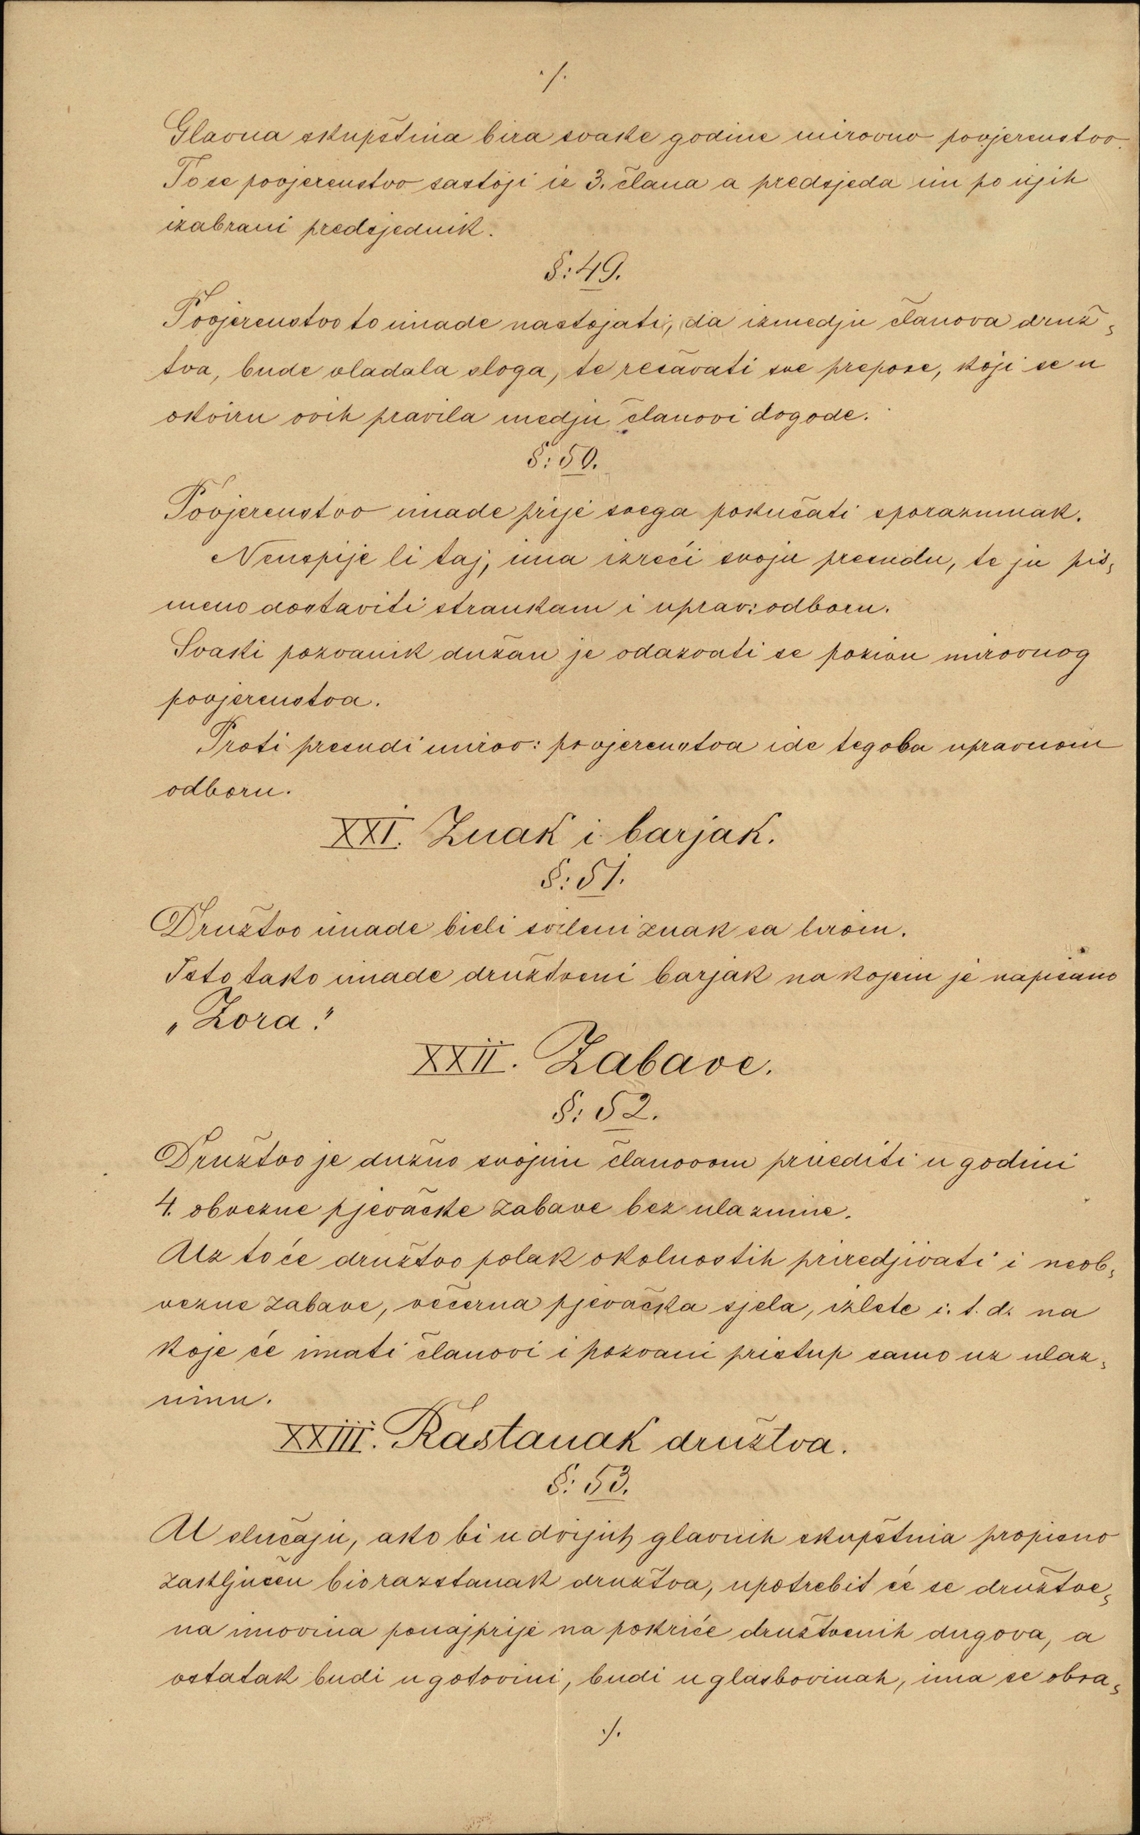 ./.
Glavna skupština bira svake godine mirovno povjerenstvo.
To se povjerenstvo sastoji iz 3. člana a predsjeda im po njih
izabrani predsjednik.
§: 49.
Povjerenstvo to imade nastojati, da izmedju članova druž-
tva, bude vladala sloga, te rešavati sve prepore, koji se u
okviru ovih pravila medju članovi dogode.
§: 50.
Povjerenstvo imade prije svega pokušati sporazumak.
Neuspije li taj, ima izreći svoju presudu, te ju pis-
meno dostaviti strankam i uprav: odboru.
Svaki pozvanik dužan je odazvati se pozivu mirovnog
povjerenstva.
Proti presudi mirov: povjerenstva ide tegoba upravnom
odboru.
XXI. Znak i barjak.
§: 51.
Družtvo imade bieli svileni znak sa lirom.
Isto tako imade družtveni barjak na kojem je napisano
„Zora."
XXII. Zabave.
§: 52.
Družtvo je dužno svojim članovom prirediti u godini
4. obvezne pjevačke zabave bez ulaznine.
Uz to će družtvo polak okolnostih priredjivati i neob-
vezne zabave, večerna pjevačka sjela, izlete i. t. d. na
koje će imati članovi i pozvani pristup samo uz ulaz-
ninu.
XXIII. Rastanak družtva.
§: 53.
U slučaju, ako bi u dvijuh glavnih skupština propisno
zaključen bio razstanak družtva, upotrebit će se družtve-
na imovina ponajprije na pokriće družtvenih dugova, a
ostatak budi u gotovini, budi u glasbovinah, ima se obra-
./.